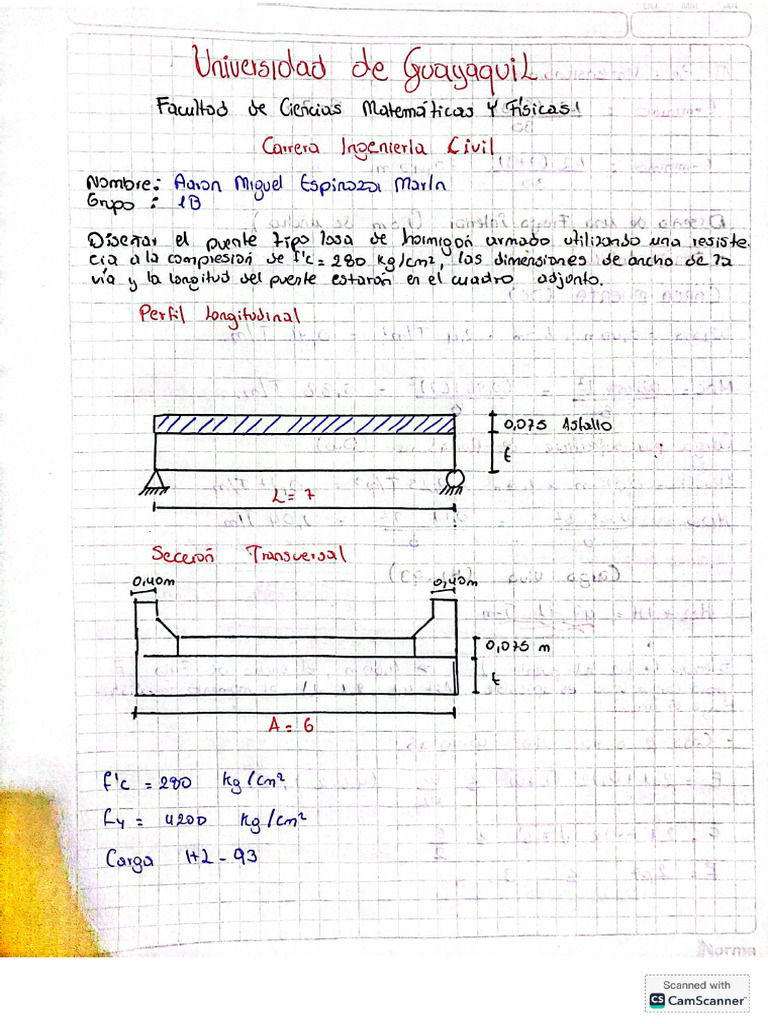 Universidad de Guayaquil
Facultad de Ciencias Matemáticas Y Físicas
Carrera Ingeniería Civil
Nombre: Aaron Miguel Espinoza Marín
Grupo : 1B
Diseñar el puente tipo losa de hormigón armado utilizando una resiste
cia a la compresión de f'c = 280 kg/cm², las dimensiones de ancho de la
vía y la longitud del puente estarán en el cuadro adjunto.
Perfil Longitudinal
0,075 Asfalto
t
L = 7
Sección Transversal
0,40m 0,40m
0,075 m
t
A = 6
f'c = 280 kg/cm²
Fy = 4200 kg/cm²
Carga HL-93
Norma
Scanned with
CS CamScanner